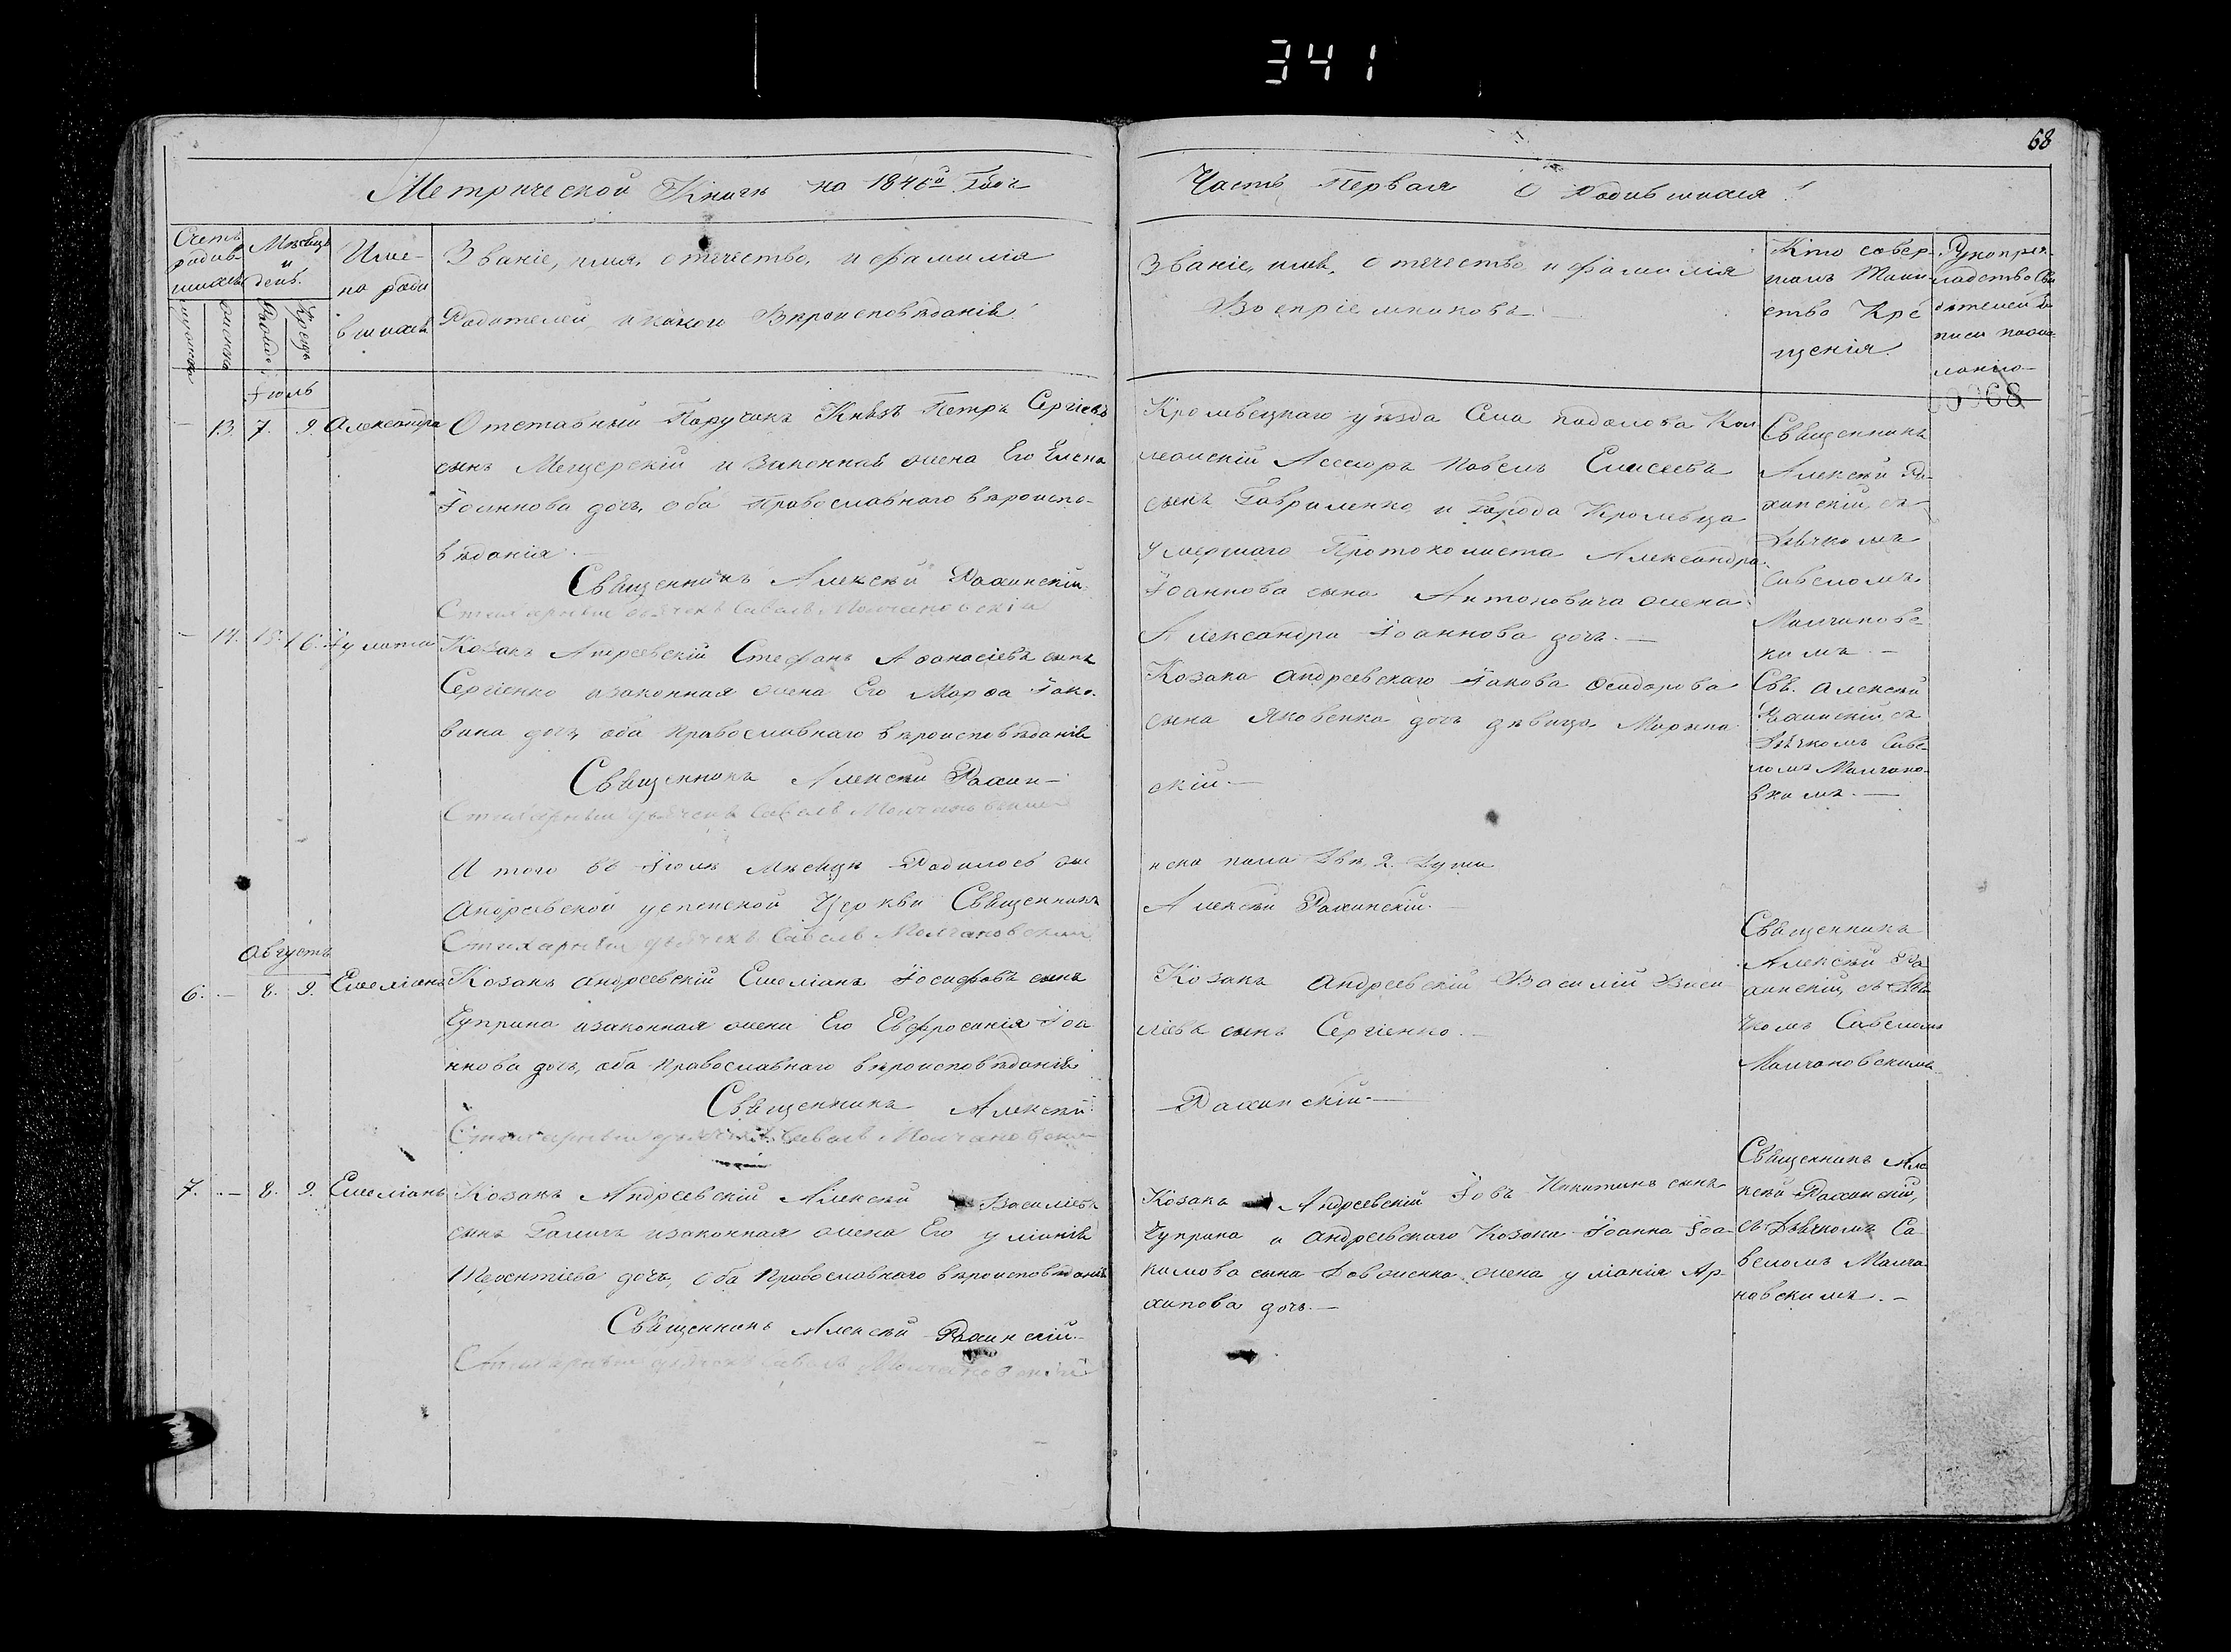 341
68
Метрической Книги на 1846й Годъ
Часть Первая О Родившихся
Счетъ родив-шихся
Мѣсяцъ и день.
Име-на роди вшихся
Званіе, имя, отечество, и фамилія
Родителей, и какого Вѣроисповѣданія
Званіе, имя, отечество и фамилія
Воспріемниковъ
Кто совер-
шалъ Таин-
ство Кре
щенія.
Рукопри-
кладство Сви
дѣтелей за
писи по
желанію
00068
Іюль
13. 7. 9. Александра
Отставный Поручикъ Князь Петръ Сергіевъ
сынъ Мещерскій и Законная жена Его Елена
Іоаннова дочь, оба Православнаго вѣроиспо-
вѣданія.
Священникъ Алексѣй Рахинскій
Стихарный дьячекъ Савелъ Молчановскій
Кролевецкаго уѣзда Села подолова Кол
лежскій Ассесоръ Павелъ Елисеевъ
сынъ Гавриленко и Города Кролевца
умершаго Протоколиста Александра
Іоаннова сына Антоновича жена
Александра Іоаннова дочь.
Священникъ
Алексѣй Ра-
хинскій, съ
Дьячкомъ
Савеломъ
Молчановс-
кимъ.
14. 15. 16. Іулитта
Козакъ Андреевскій Стефанъ Аѳанасіевъ сынъ
Сергіенко изаконная жена Его Марѳа Іако-
влева дочь, оба Православнаго вѣроисповѣданія
Священникъ Алексѣй Рахин-
Стихарный дьячекъ Савелъ Молчановскій
Козака Андреевскаго Іакова Ѳеодорова
сына Яковенка дочь дѣвица Марѳна
скій.
Свя. Алексѣй
Рахинскій съ
Дьячкомъ Саве-
ломъ Молчано-
вкимъ.
И того въ Іюлѣ Мѣсяцѣ Родилось же
нска пола двѣ 2. Души
Андреевской успенской Церкви Священникъ
Алексѣй Рахинскій.
Стихарный дьячекъ Савелъ Молчановскій
Августъ
6. 8. 9. Емеліанъ
Козакъ Андреевскій Емеліанъ Іосифовъ сынъ
Чуприна изаконная жена Его Евфросинія Іоа
ннова дочь, оба Православнаго вѣроисповѣданія
Священникъ Алексѣй
Стихарный дьячекъ Савелъ Молчановскій
Козакъ Андреевскій Василій Васи
ліевъ сынъ Сергіенко.
Рахинскій.
Священникъ
Алексѣй Ра
хинскій, съ Дья
чкомъ Савеломъ
Молчановскимъ
7. 8. 9. Емеліанъ
Козакъ Андреевскій Алексѣй Василіевъ
сынъ Галичъ изаконная жена Его Уліанія
Терентіева дочь, оба Православнаго вѣроисповѣданія
Священникъ Алексѣй Рахинскій.
Стихарный дьячекъ Савелъ Молчановскій
Козакъ Андреевскій Іовъ Никитинъ сынъ
Чуприна и Андреевскаго Козака Іоанна Іоа-
кимова сына Довженка жена Уліанія Ар-
хипова дочь.
Священникъ Але
ксѣй Рахинскій,
съ Дьячкомъ Са
веломъ Молча
новскимъ.